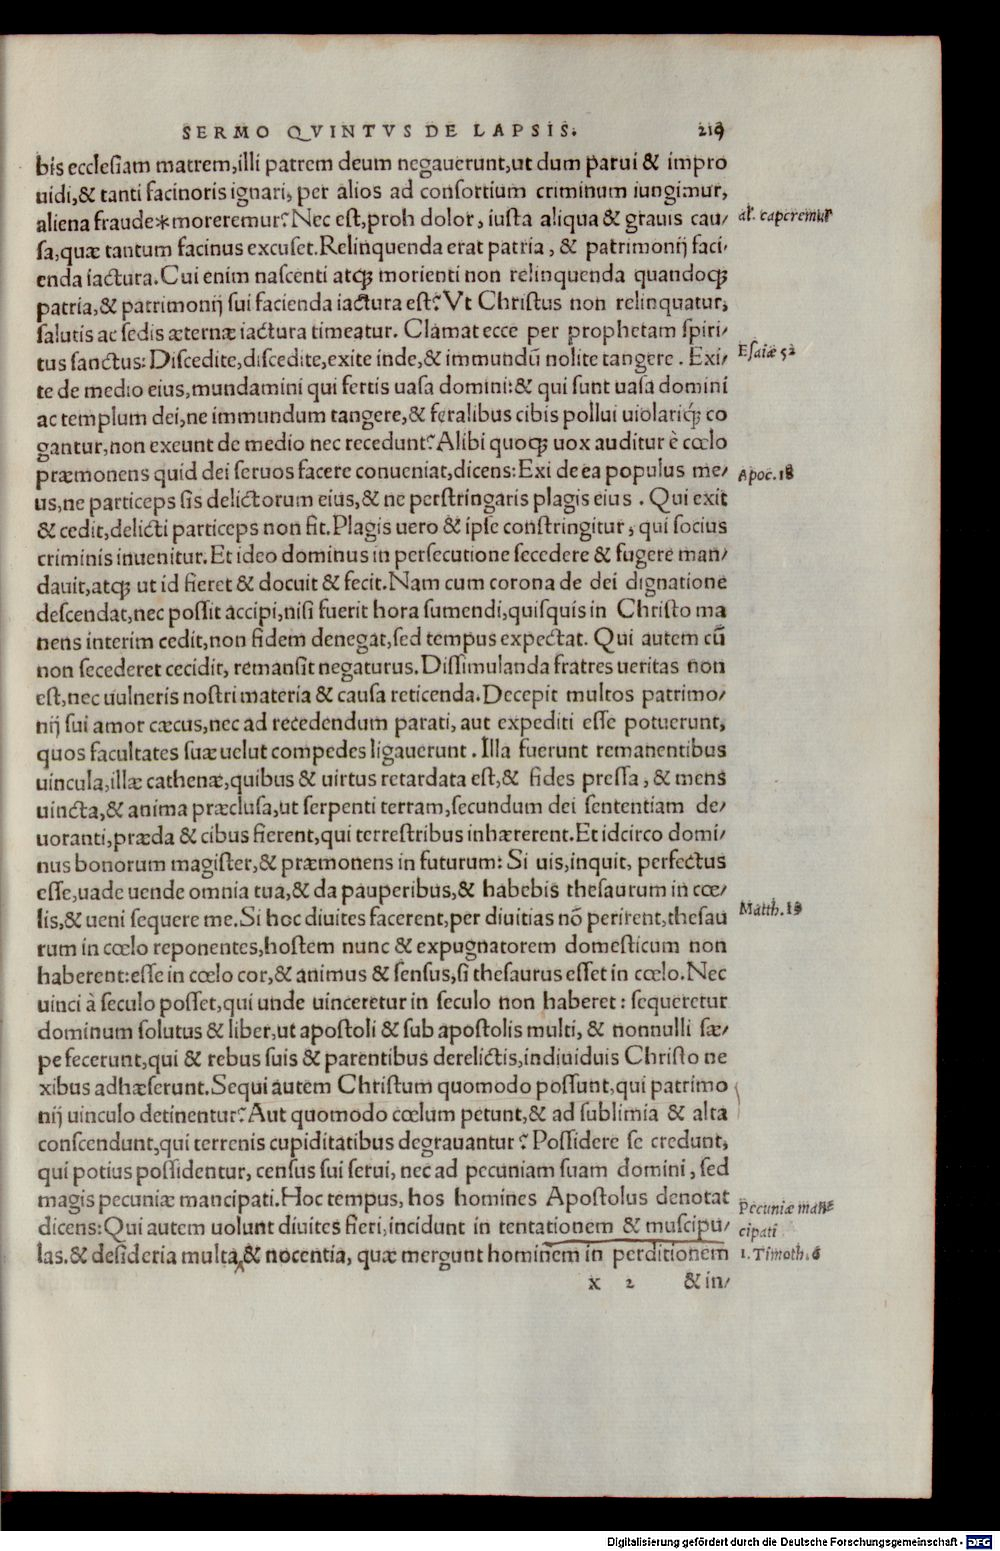 SERMO QVINTVS DE LAPSIS. 219
bis ecclesiam matrem, illi patrem deum negauerunt, ut dum parui & impro
uidi, & tanti facinoris ignari, per alios ad consortium criminum iungimur,
aliena fraude*moreremur? Nec est, proh dolor, iusta aliqua & grauis cau/
al. caperemur
sa, quæ tantum facinus excuset. Relinquenda erat patria, & patrimonij faci/
enda iactura. Cui enim nascenti atqꝫ morienti non relinquenda quandoqꝫ
patria, & patrimonij sui facienda iactura est? Vt Christus non relinquatur,
salutis ac sedis æternæ iactura timeatur. Clamat ecce per prophetam spiri/
tus sanctus: Discedite, discedite, exite inde, & immundū nolite tangere. Exi/
Esaiæ 52
te de medio eius, mundamini qui fertis uasa domini: & qui sunt uasa domini
ac templum dei, ne immundum tangere, & feralibus cibis pollui uiolariqꝫ co
gantur, non exeunt de medio nec recedunt? Alibi quoqꝫ uox auditur è cœlo
præmonens quid dei seruos facere conueniat, dicens: Exi de ea populus me/
Apoc. 18
us, ne particeps sis delictorum eius, & ne perstringaris plagis eius. Qui exit
& cedit, delicti particeps non fit. Plagis uero & ipse constringitur, qui socius
criminis inuenitur. Et ideo dominus in persecutione secedere & fugere man/
dauit, atqꝫ ut id fieret & docuit & fecit. Nam cum corona de dei dignatione
descendat, nec possit accipi, nisi fuerit hora sumendi, quisquis in Christo ma
nens interim cedit, non fidem denegat, sed tempus expectat. Qui autem cū
non secederet cecidit, remansit negaturus. Dissimulanda fratres ueritas non
est, nec uulneris nostri materia & causa reticenda. Decepit multos patrimo/
nij sui amor cæcus, nec ad recedendum parati, aut expediti esse potuerunt,
quos facultates suæ uelut compedes ligauerunt. Illa fuerunt remanentibus
uincula, illæ cathenæ, quibus & uirtus retardata est, & fides pressa, & mens
uincta, & anima præclusa, ut serpenti terram, secundum dei sententiam de/
uoranti, præda & cibus fierent, qui terrestribus inhærerent. Et idcirco domi/
nus bonorum magister, & præmonens in futurum: Si uis, inquit, perfectus
esse, uade uende omnia tua, & da pauperibus, & habebis thesaurum in cœ/
lis, & ueni sequere me. Si hoc diuites facerent, per diuitias nō perirent, thesau
Matth. 19
rum in cœlo reponentes, hostem nunc & expugnatorem domesticum non
haberent: esse in cœlo cor, & animus & sensus, si thesaurus esset in cœlo. Nec
uinci à seculo posset, qui unde uinceretur in seculo non haberet: sequeretur
dominum solutus & liber, ut apostoli & sub apostolis multi, & nonnulli sæ/
pe fecerunt, qui & rebus suis & parentibus derelictis, indiuiduis Christo ne
xibus adhæserunt. Sequi autem Christum quomodo possunt, qui patrimo
nij uinculo detinentur? Aut quomodo cœlum petunt, & ad sublimia & alta
conscendunt, qui terrenis cupiditatibus degrauantur? Possidere se credunt,
qui potius possidentur, census sui serui, nec ad pecuniam suam domini, sed
magis pecuniæ mancipati. Hoc tempus, hos homines Apostolus denotat
Pecuniæ man
dicens: Qui autem uolunt diuites fieri, incidunt in tentationem & muscipu/
cipati
las. & desideria multa & nocentia, quæ mergunt hominem in perditionem
1. Timoth. 6
x 2 & in/
Digitalisierung gefördert durch die Deutsche Forschungsgemeinschaft - DFG